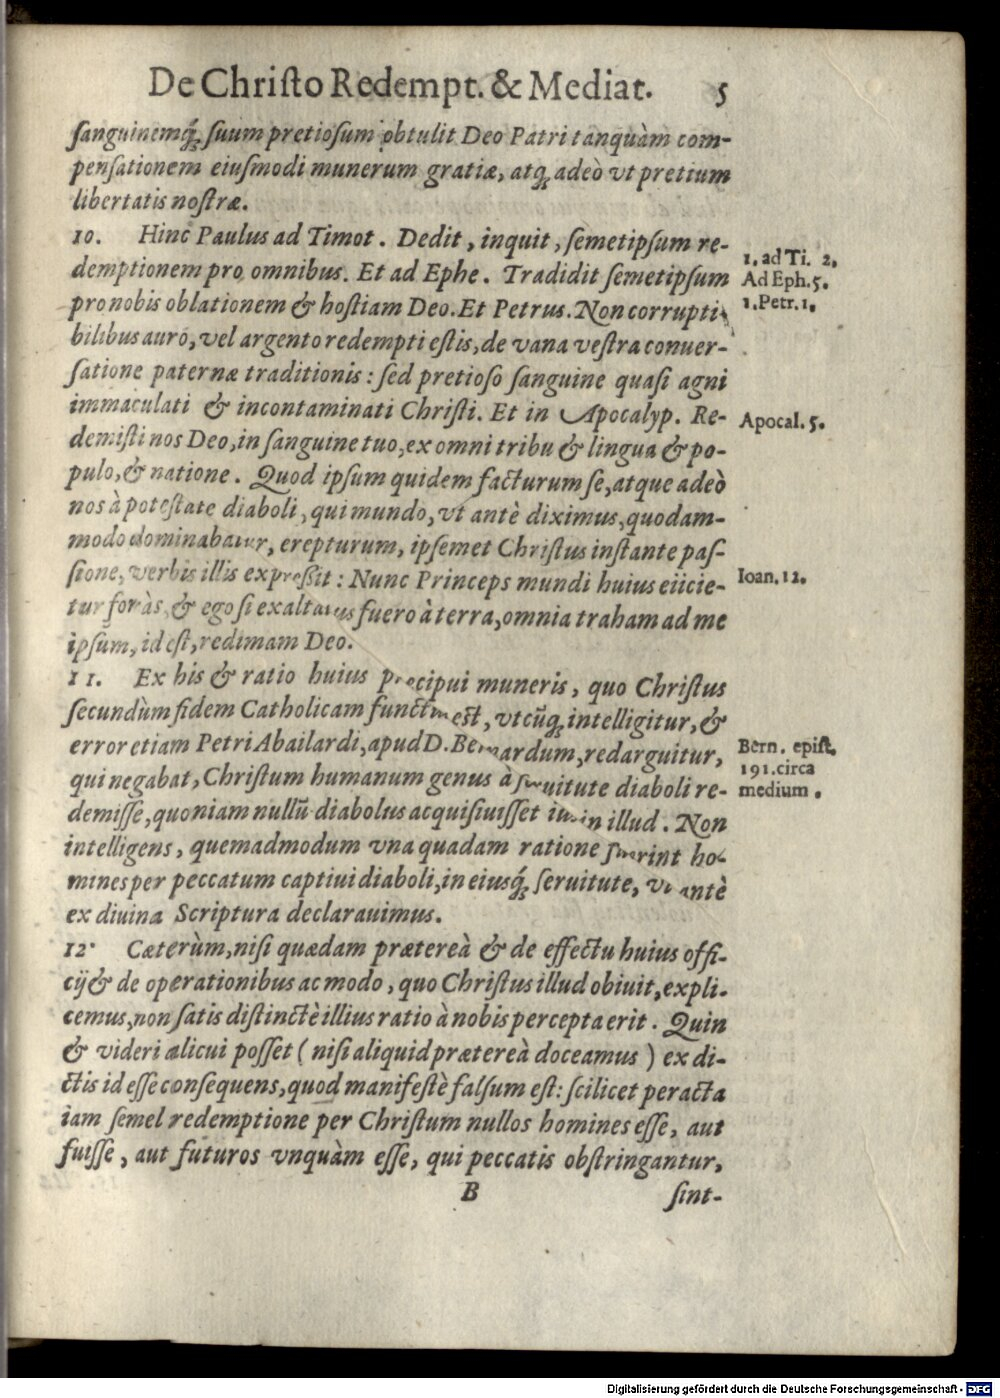 De Christo Redempt. & Mediat. 5
ſanguinemq́; ſuum pretioſum obtulit Deo Patri tanquàm com-
penſationem eiuſmodi munerum gratiæ, atq́; adeò vt pretium
libertatis noſtræ.
10. Hinc Paulus ad Timot. Dedit, inquit, ſemetipſum re-
demptionem pro omnibus. Et ad Ephe. Tradidit ſemetipſum
pro nobis oblationem & hoſtiam Deo. Et Petrus. Non corrupti-
bilibus auro, vel argento redempti eſtis, de vana veſtra conuer-
ſatione paternæ traditionis: ſed pretioſo ſanguine quaſi agni
immaculati & incontaminati Chriſti. Et in Apocalyp. Re-
demiſti nos Deo, in ſanguine tuo, ex omni tribu & lingua & po-
pulo, & natione. Quod ipſum quidem facturum ſe, atque adeò
nos à poteſtate diaboli, qui mundo, vt antè diximus, quodam-
modo dominabatur, erepturum, ipſemet Chriſtus inſtante paſ-
ſione, verbis illis expreſſit: Nunc Princeps mundi huius eiicie-
tur foràs, & ego ſi exaltatus fuero à terra, omnia traham ad me
ipſum, id eſt, redimam Deo.
11. Ex his & ratio huius præcipui muneris, quo Chriſtus
ſecundùm fidem Catholicam functus eſt, vtcũq́; intelligitur, &
error etiam Petri Abailardi, apud D. Bernardum, redarguitur,
qui negabat, Chriſtum humanum genus à ſeruitute diaboli re-
demiſſe, quoniam nullũ diabolus acquiſiuiſſet ius in illud. Non
intelligens, quemadmodum vna quadam ratione fuerint ho-
mines per peccatum captiui diaboli, in eiusq́; ſeruitute, vt antè
ex diuina Scriptura declarauimus.
12. Cæterùm, niſi quædam prætereà & de effectu huius offi-
cij & de operationibus ac modo, quo Chriſtus illud obiuit, expli-
cemus, non ſatis diſtinctè illius ratio à nobis percepta erit. Quin
& videri alicui poſſet ( niſi aliquid prætereà doceamus ) ex di-
ctis id eſſe conſequens, quod manifeſtè falſum eſt: ſcilicet peracta
iam ſemel redemptione per Chriſtum nullos homines eſſe, aut
fuiſſe, aut futuros vnquàm eſſe, qui peccatis obſtringantur,
B ſint-
1. ad Ti. 2.
Ad Eph. 5.
1. Petr. 1.
Apocal. 5.
Ioan. 12.
Bern. epiſt.
191. circa
medium.
Digitalisierung gefördert durch die Deutsche Forschungsgemeinschaft - DFG